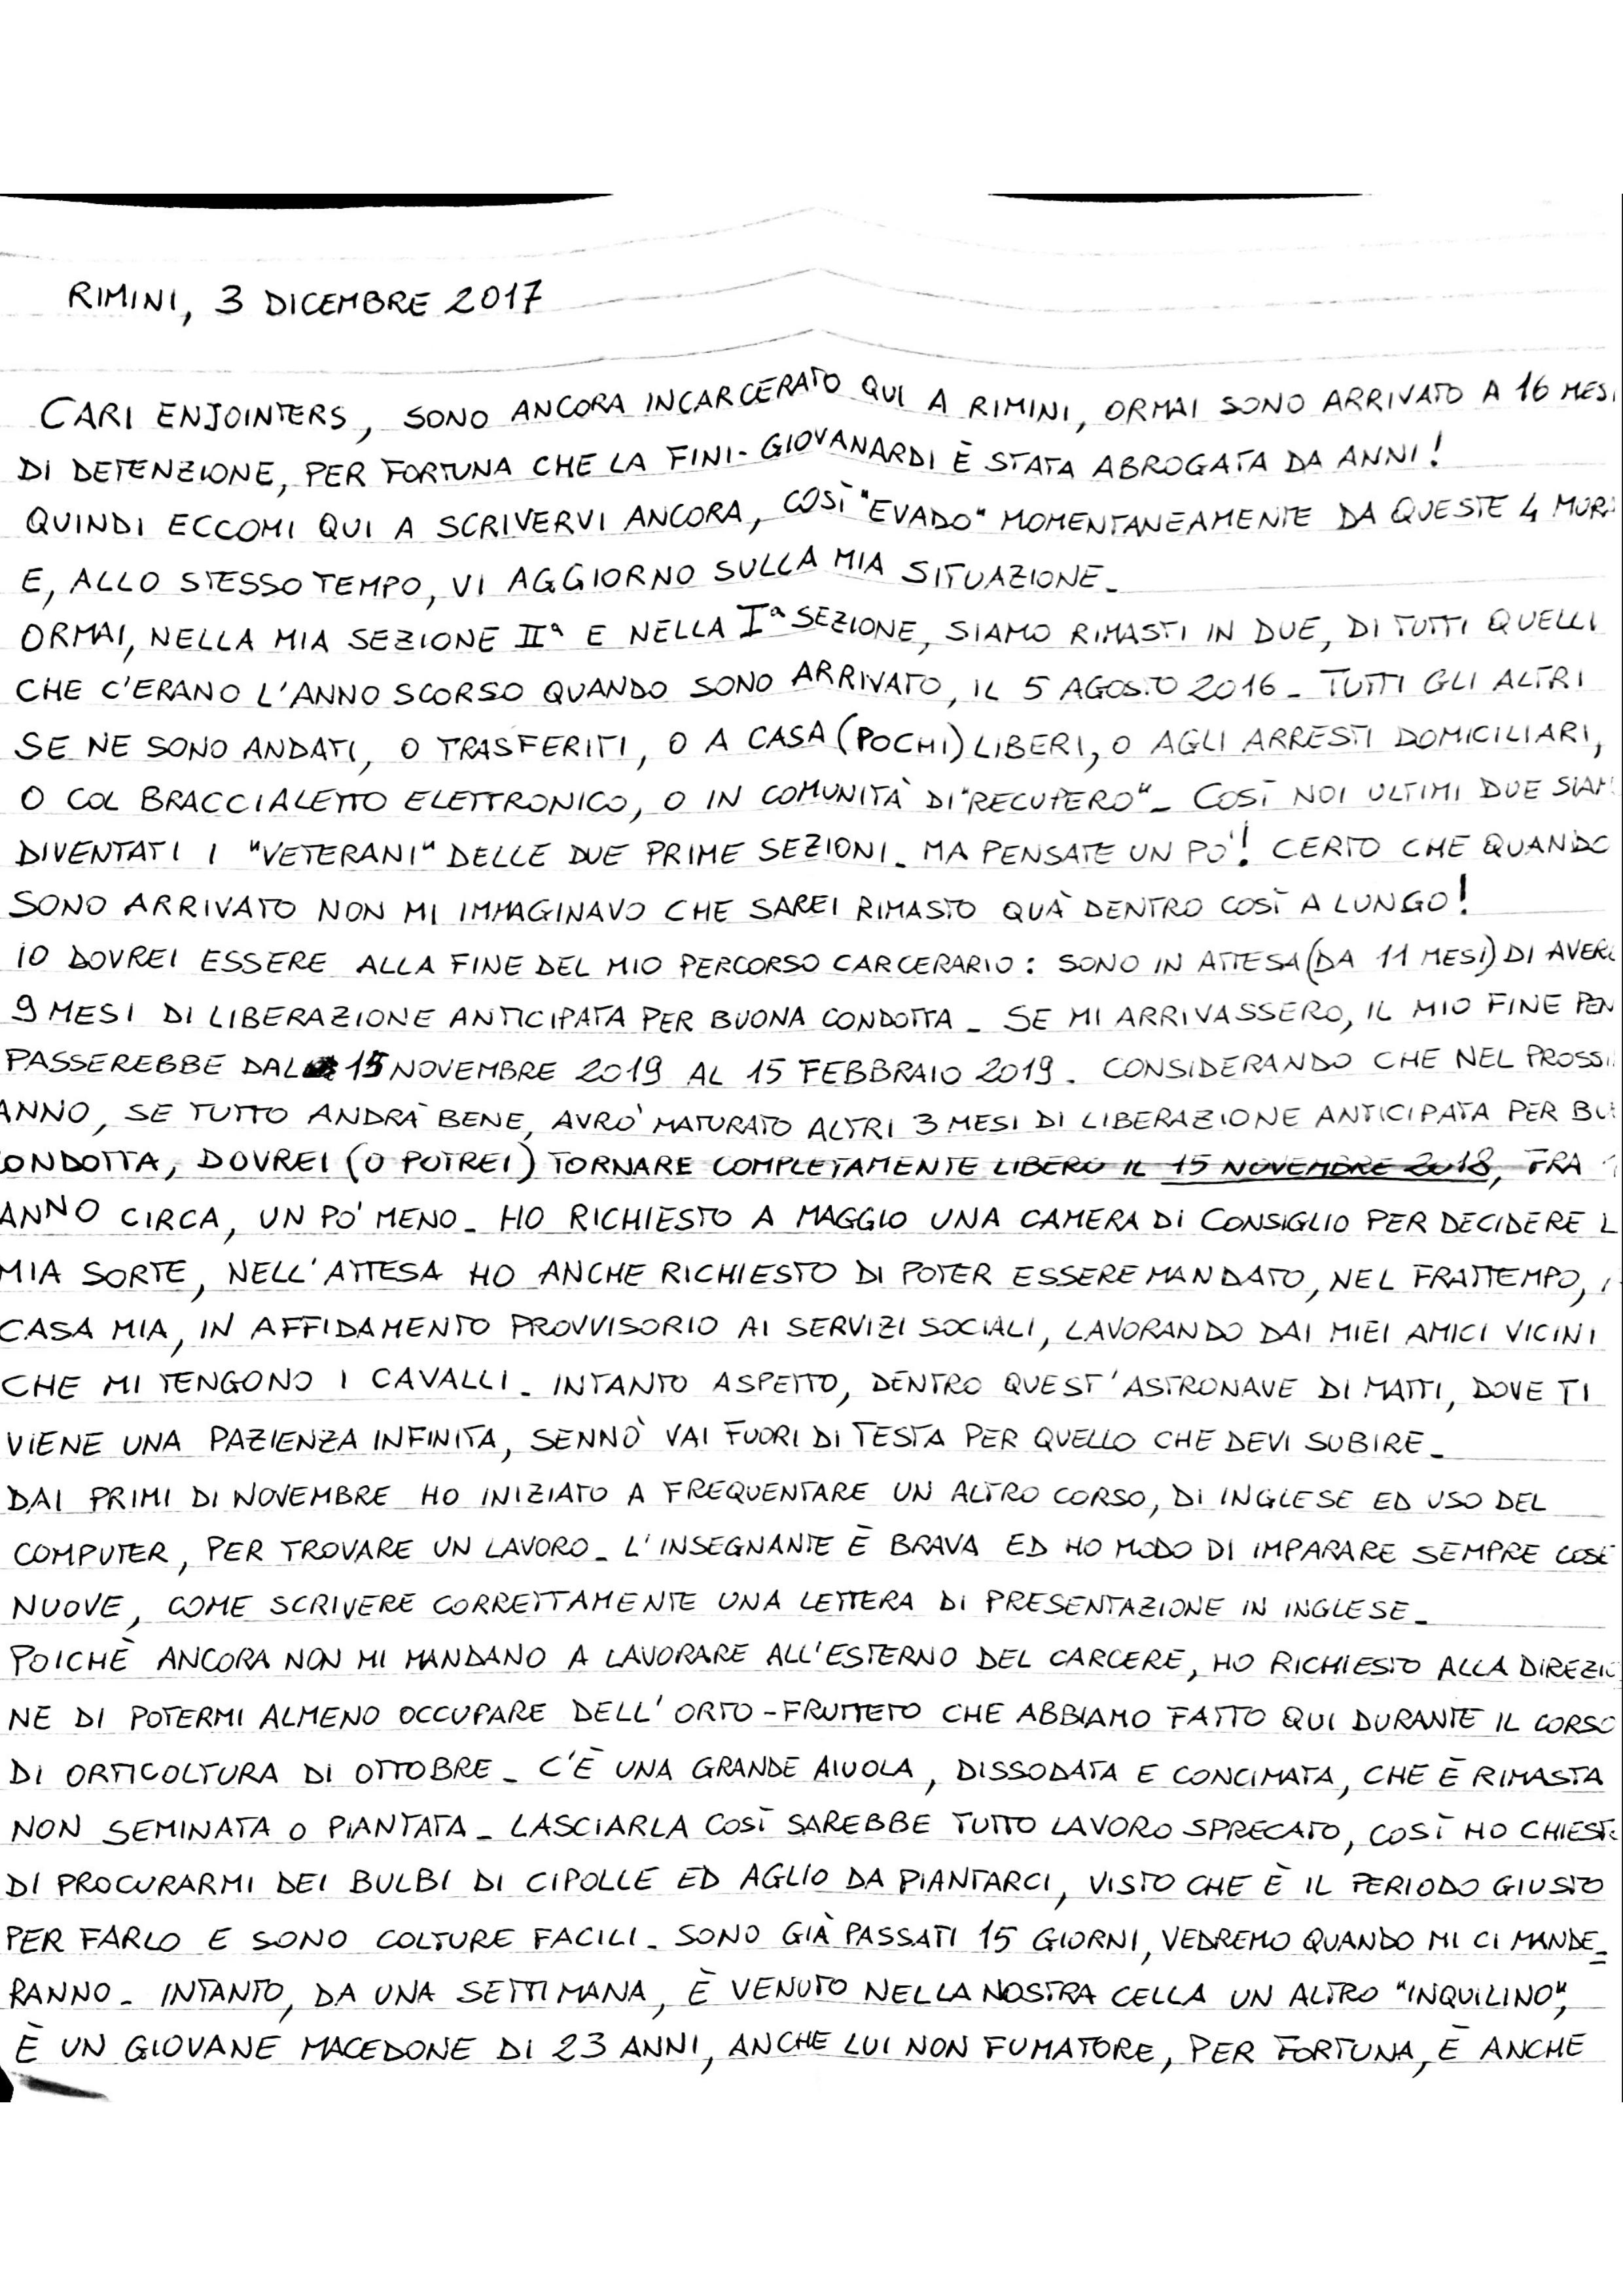 RIMINI, 3 DICEMBRE 2017
CARI ENJOINTERS, SONO ANCORA INCARCERATO QUI A RIMINI, ORMAI SONO ARRIVATO A 16 MESI
DI DETENZIONE, PER FORTUNA CHE LA FINI-GIOVANARDI È STATA ABROGATA DA ANNI!
QUINDI ECCOMI QUI A SCRIVERVI ANCORA, COSÌ "EVADO" MOMENTANEAMENTE DA QUESTE 4 MURA
E, ALLO STESSO TEMPO, VI AGGIORNO SULLA MIA SITUAZIONE_
ORMAI, NELLA MIA SEZIONE IIª E NELLA Iª SEZIONE, SIAMO RIMASTI IN DUE, DI TUTTI QUELLI
CHE C'ERANO L'ANNO SCORSO QUANDO SONO ARRIVATO, IL 5 AGOSTO 2016_ TUTTI GLI ALTRI
SE NE SONO ANDATI, O TRASFERITI, O A CASA (POCHI) LIBERI, O AGLI ARRESTI DOMICILIARI,
O COL BRACCIALETTO ELETTRONICO, O IN COMUNITÀ DI "RECUPERO"_ COSÌ NOI ULTIMI DUE SIAM
DIVENTATI I "VETERANI" DELLE DUE PRIME SEZIONI_ MA PENSATE UN PO'! CERTO CHE QUANDO
SONO ARRIVATO NON MI IMMAGINAVO CHE SAREI RIMASTO QUÀ DENTRO COSÌ A LUNGO!
IO DOVREI ESSERE ALLA FINE DEL MIO PERCORSO CARCERARIO: SONO IN ATTESA (DA 11 MESI) DI AVERE
9 MESI DI LIBERAZIONE ANTICIPATA PER BUONA CONDOTTA_ SE MI ARRIVASSERO, IL MIO FINE PEN
PASSEREBBE DAL 15 NOVEMBRE 2019 AL 15 FEBBRAIO 2019. CONSIDERANDO CHE NEL PROSSI
ANNO, SE TUTTO ANDRÀ BENE, AVRO' MATURATO ALTRI 3 MESI DI LIBERAZIONE ANTICIPATA PER BU
ONDOTTA, DOVREI (O POTREI) TORNARE COMPLETAMENTE LIBERO IL 15 NOVEMBRE 2018, FRA 1
ANNO CIRCA, UN PO' MENO_ HO RICHIESTO A MAGGIO UNA CAMERA DI CONSIGLIO PER DECIDERE L
MIA SORTE, NELL'ATTESA HO ANCHE RICHIESTO DI POTER ESSERE MANDATO, NEL FRATTEMPO,
CASA MIA, IN AFFIDAMENTO PROVVISORIO AI SERVIZI SOCIALI, LAVORANDO DAI MIEI AMICI VICINI
CHE MI TENGONO I CAVALLI_ INTANTO ASPETTO, DENTRO QUEST'ASTRONAVE DI MATTI, DOVE TI
VIENE UNA PAZIENZA INFINITA, SENNÒ VAI FUORI DI TESTA PER QUELLO CHE DEVI SUBIRE_
DAI PRIMI DI NOVEMBRE HO INIZIATO A FREQUENTARE UN ALTRO CORSO, DI INGLESE ED USO DEL
COMPUTER, PER TROVARE UN LAVORO_ L'INSEGNANTE È BRAVA ED HO MODO DI IMPARARE SEMPRE COSE
NUOVE, COME SCRIVERE CORRETTAMENTE UNA LETTERA DI PRESENTAZIONE IN INGLESE_
POICHÈ ANCORA NON MI MANDANO A LAVORARE ALL'ESTERNO DEL CARCERE, HO RICHIESTO ALLA DIREZIO
NE DI POTERMI ALMENO OCCUPARE DELL'ORTO-FRUTTETO CHE ABBIAMO FATTO QUI DURANTE IL CORSO
DI ORTICOLTURA DI OTTOBRE_ C'È UNA GRANDE AIUOLA, DISSODATA E CONCIMATA, CHE È RIMASTA
NON SEMINATA O PIANTATA_ LASCIARLA COSÌ SAREBBE TUTTO LAVORO SPRECATO, COSÌ HO CHIESTO
DI PROCURARMI DEI BULBI DI CIPOLLE ED AGLIO DA PIANTARCI, VISTO CHE È IL PERIODO GIUSTO
PER FARLO E SONO COLTURE FACILI_ SONO GIÀ PASSATI 15 GIORNI, VEDREMO QUANDO MI CI MANDE=
RANNO_ INTANTO, DA UNA SETTIMANA, È VENUTO NELLA NOSTRA CELLA UN ALTRO "INQUILINO",
È UN GIOVANE MACEDONE DI 23 ANNI, ANCHE LUI NON FUMATORE, PER FORTUNA, È ANCHE